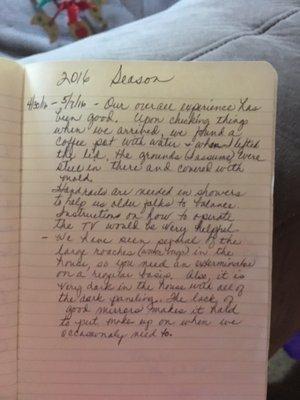 2016 Season
4/30/16 - 5/7/16 - Our overall experience has
been good. Upon checking things
when we arrived, we found a
coffee pot with water & when I lifted
the lid, the grounds (I assume) were
still in there and covered with
mold.
Handrails are needed in showers
to help us older folks to balance.
Instructions on how to operate
the TV would be very helpful.
- We have seen several of the
large roaches (water bugs) in the
house, so you need an exterminator
on a regular basis. Also, it is
very dark in the house with all of
the dark paneling. The lack of
good mirrors makes it hard
to put make up on when we
occasionally need to.